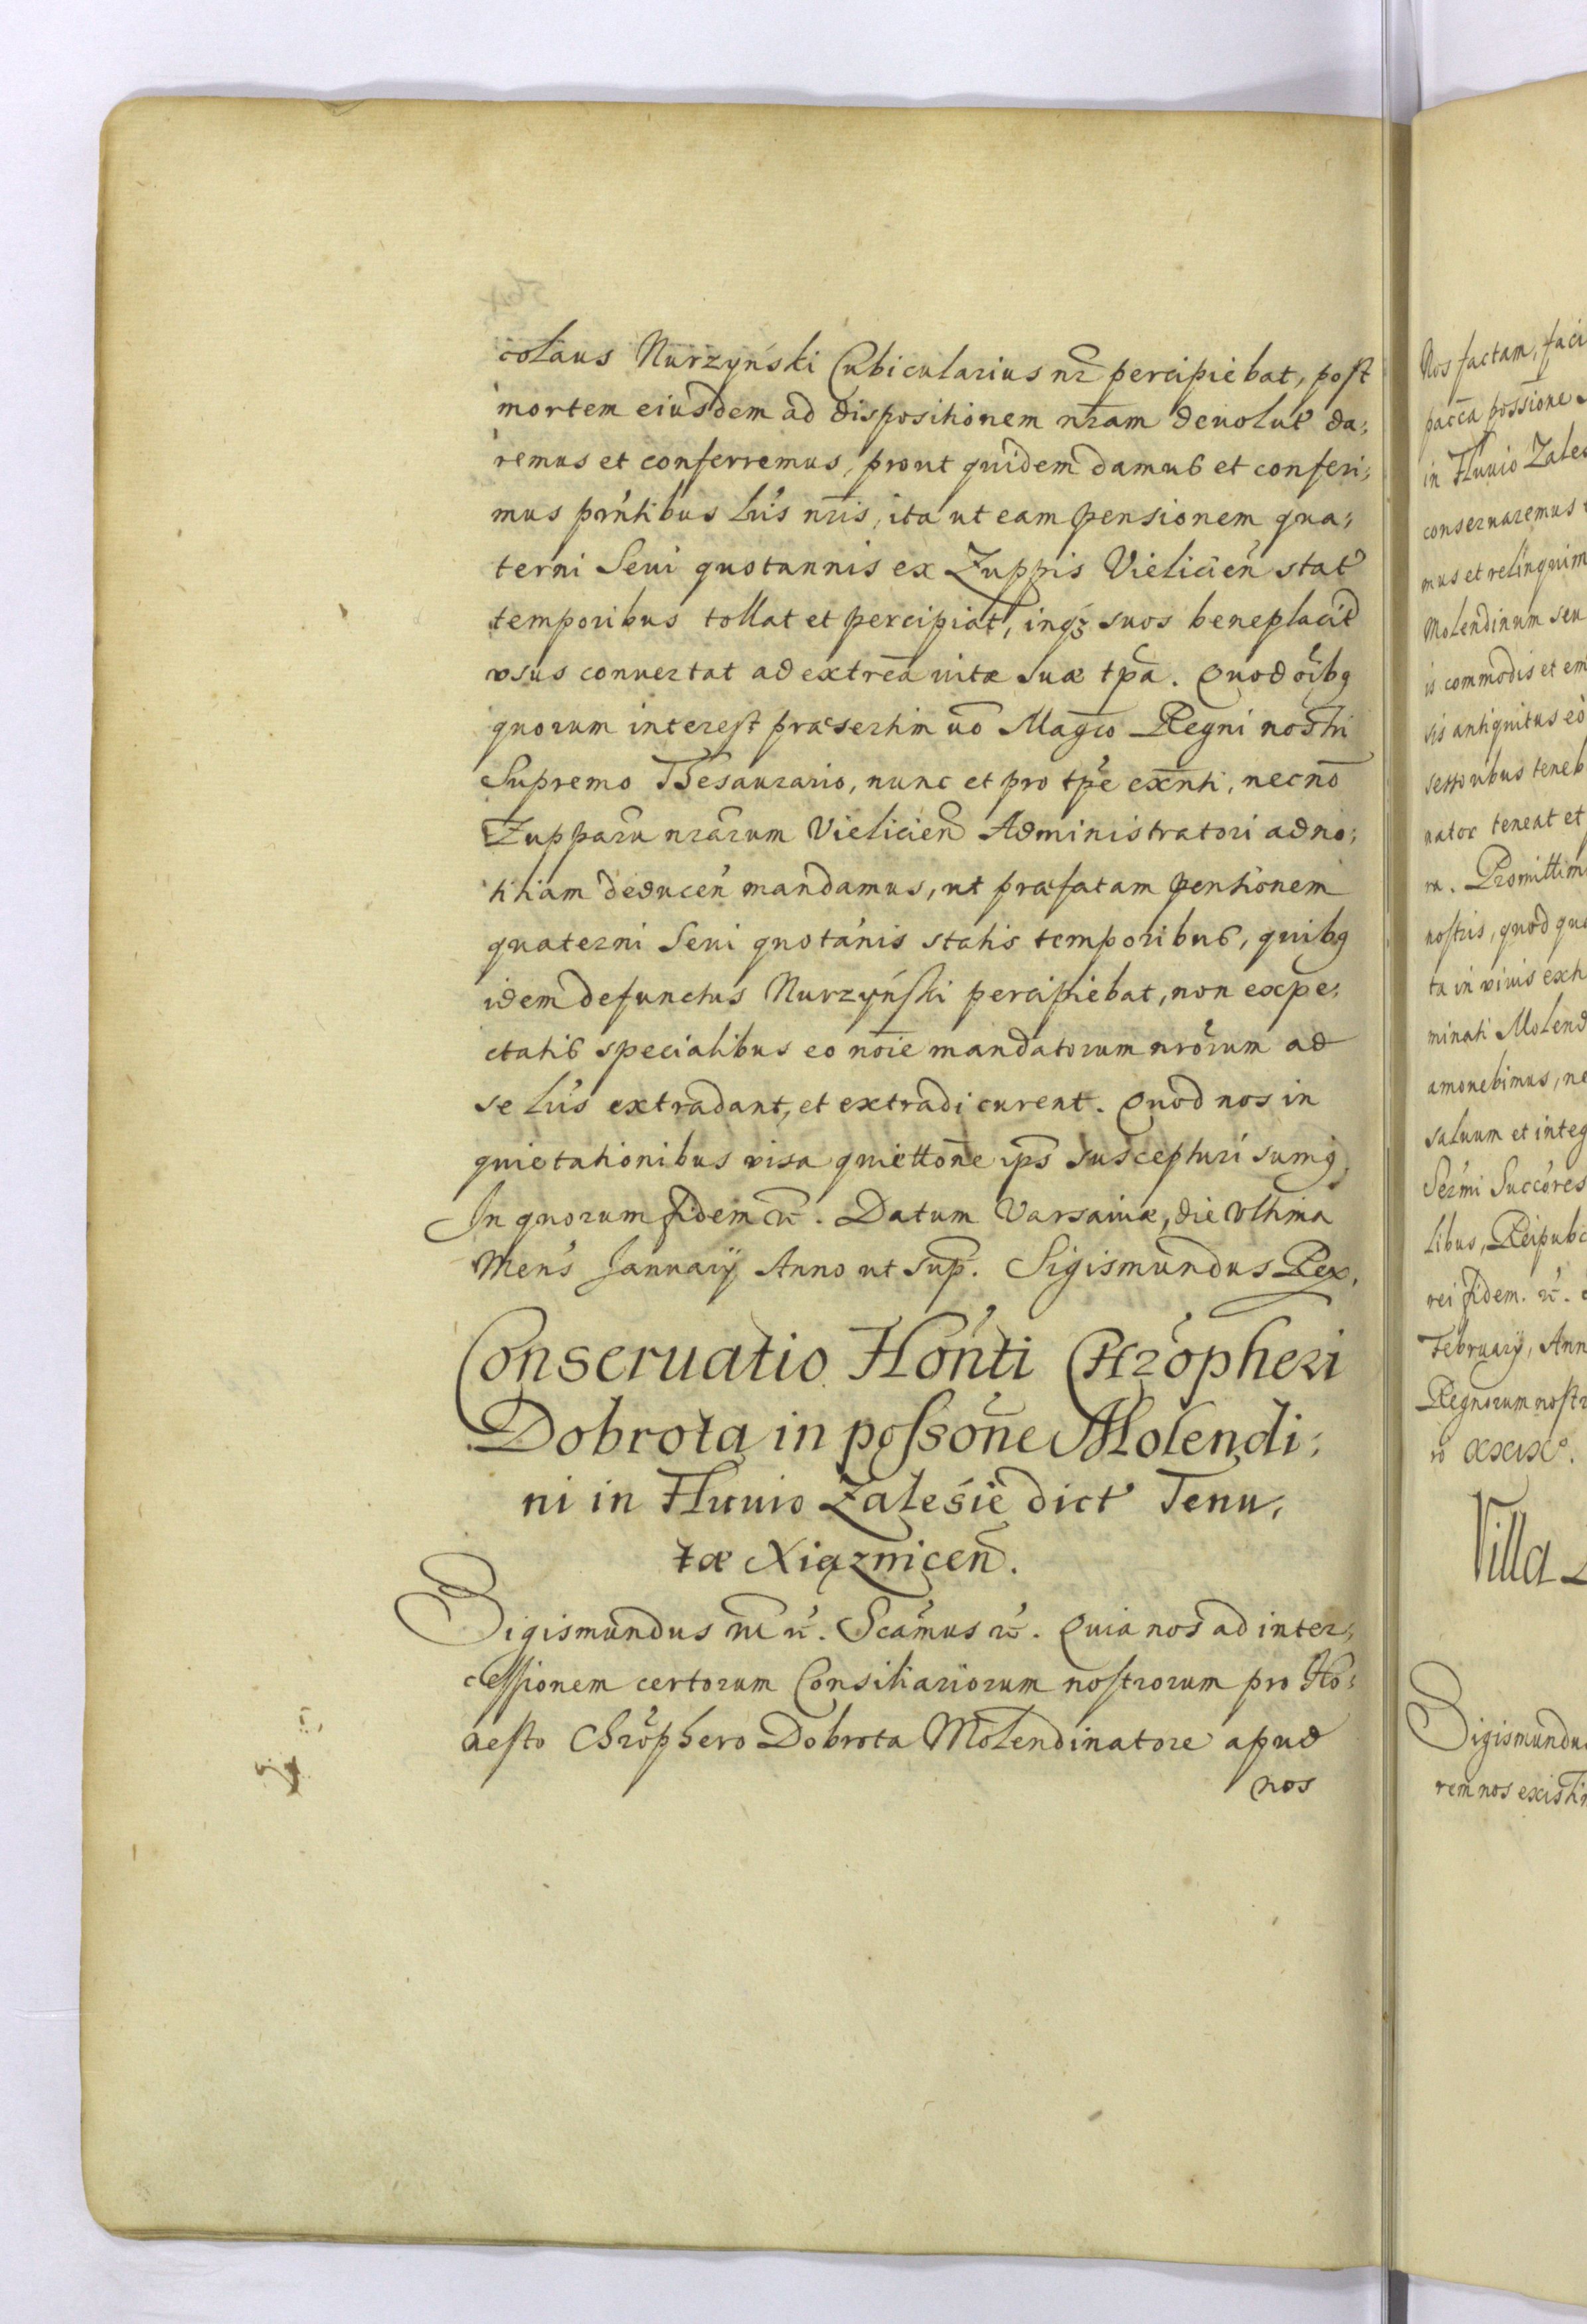 colaus Nurzyński Cubicularius nr̄ percipiebat, post
mortem eiusdem ad dispositionem nr̄am deuolut da;
remus et conferremus, prout quidem damus et conferi;
mus pn̄tibus lr̄is nr̄is, ita ut eam pensionem qua;
terni Seui quotannis ex Zuppis Vielicień stat
temporibus tollat et percipiat, inqz suos beneplacit
vsus conuertat ad extrēa uitæ suæ tp̄a. Quod oībq
quorum interest præsertim uō Magco Regni nostri
Supremo Thesaurario, nunc et pro tp̄e exn̄ti, necnō
Zupparū nrārum Vielicień Administratori ad no;
titiam deducen̄ mandamus, ut præfatam pensionem
quaterni Seui quotānis statis temporibus, quibq
idem defunctus Nurzyński percipiebat, non expe;
ctatis specialibus eo noīe mandatorum nrōrum ad
se lr̄is extradant, et extradi curent. Quod nos in
quietationibus visa quiettōne ip̄s suscepturi sumq
In quorum fidem &c. Datum Varsauiæ, die Vltima
Mens̄ Januarij Anno ut sup̄. Sigismundus Rex.
Conseruatio Hon̄ti Chrōpheri
Dobrota in possōne Molendi;
ni in Fluuio Zalesie dict Tenu,
tæ Xiąznicen̄.
Sigismundus III &c. Scāmus &c. Quia nos ad inter;
cessionem certorum Consiliariorum nostrorum pro Ho;
nesto Chrōphero Dobrota Molendinatore apud
nos
Nos factam, faci
in Fluuio Zales
conseruaremus
mus et relinquim
Molendinum seu
is commodis et em
sis antiquitus eo
nator teneat et
ra. Promittim
nostris, quod qu
ta in viuis exti
minati Molend
amouebimus, ne
saluum et integ
Serm̄i Succōres
libus, Reipubc
rei fidem. &c.
February, Ann
Regnorum nostr
Villa
Sigismundu
rem nos existim